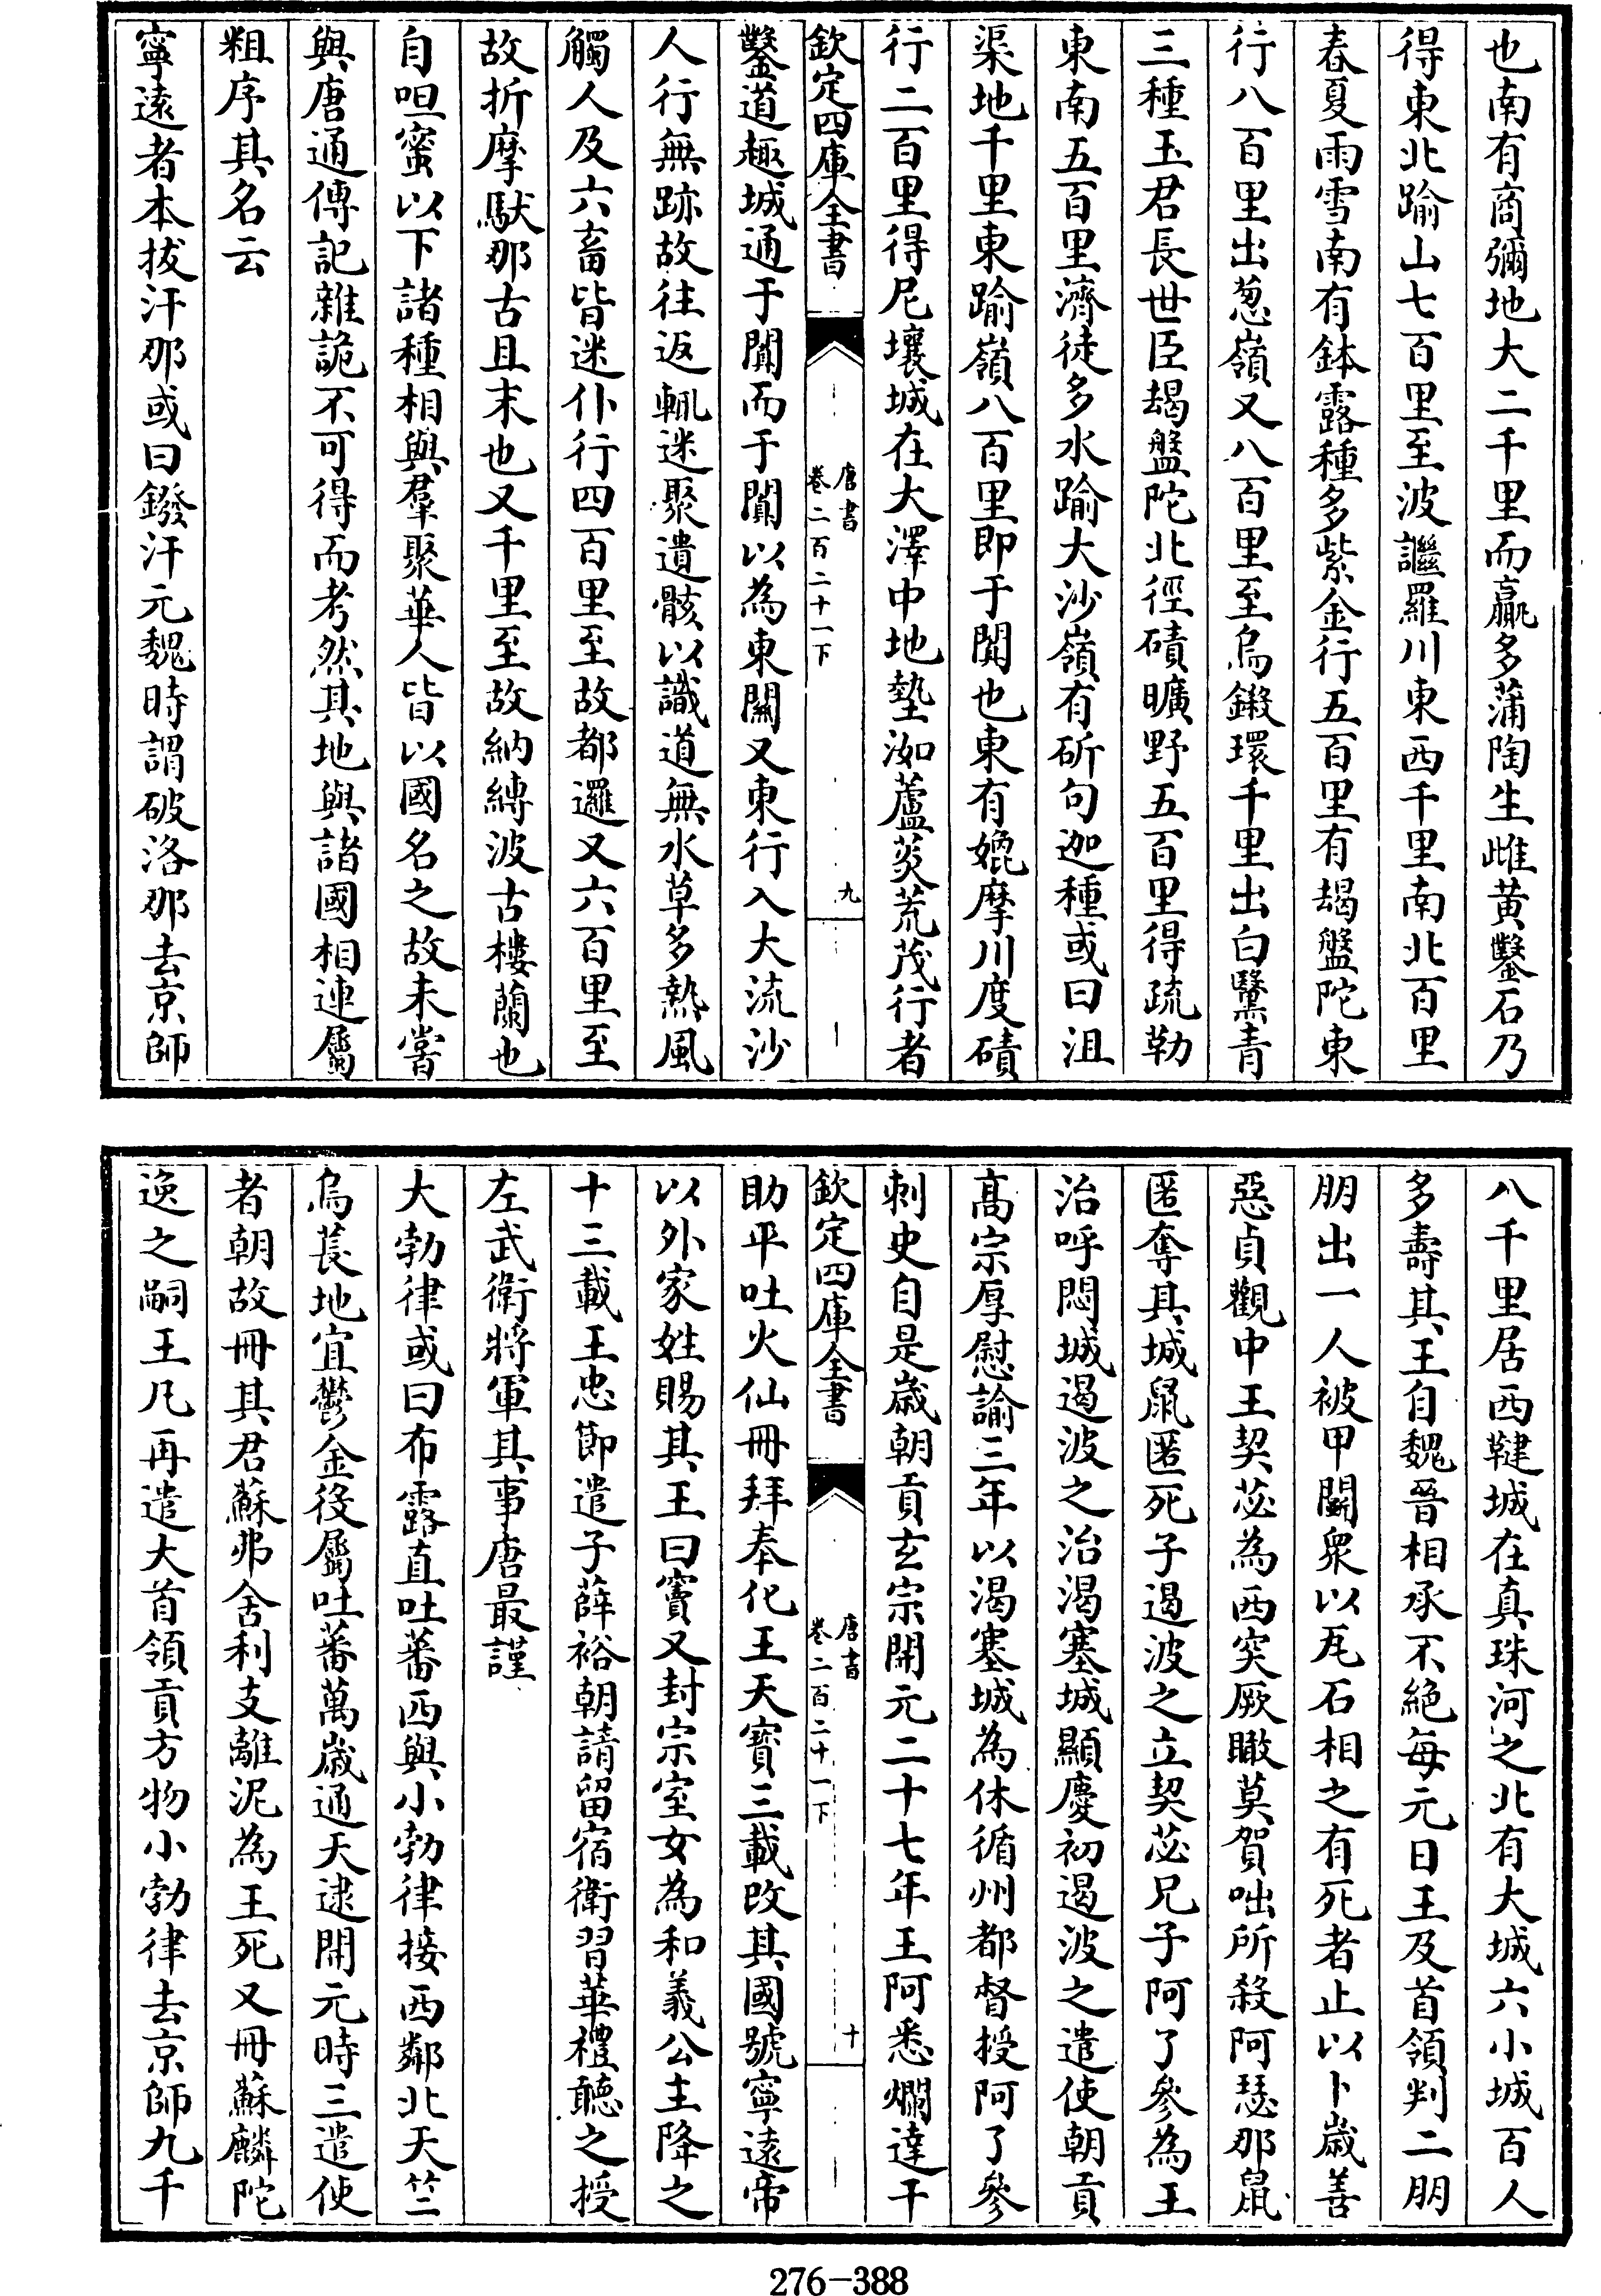 也南有商彌地大二千里而贏多蒲陶生雌黄鑿石乃
得東北踰山七百里至波謎羅川東西千里南北百里
春夏雨雪南有鉢露種多紫金行五百里有朅盤陀東
行八百里出葱嶺又八百里至烏鎩環千里出白黳青
三種玉君長世臣朅盤陀北徑磧曠野五百里得疏勒
東南五百里濟徒多水踰大沙嶺有斫句迦種或曰沮
渠地千里東踰嶺八百里即于闐也東有媲摩川度磧
行二百里得尼壤城在大澤中地墊洳蘆荻荒茂行者
欽定四庫全書
唐書
卷二百二十一下
九
鑿道趣城通于闐而于闐以為東關又東行入大流沙
人行無跡故往返輒迷聚遺骸以識道無水草多熱風
觸人及六畜皆迷仆行四百里至故都邏又六百里至
故折摩馱那古且末也又千里至故納縛波古樓蘭也
自呾蜜以下諸種相與羣聚華人皆以國名之故未嘗
與唐通傳記雜詭不可得而考然其地與諸國相連屬
粗序其名云
寧遠者本拔汗那或曰鏺汗元魏時謂破洛那去京師
八千里居西鞬城在真珠河之北有大城六小城百人
多壽其王自魏晉相承不絕每元日王及首領判二朋
朋出一人被甲鬭衆以瓦石相之有死者止以卜歲善
惡貞觀中王契苾為西突厥瞰莫賀咄所殺阿瑟那鼠
匿奪其城鼠匿死子遏波之立契苾兄子阿了參為王
治呼悶城遏波之治渴塞城顯慶初遏波之遣使朝貢
高宗厚慰諭三年以渴塞城為休循州都督授阿了參
刺史自是歲朝貢玄宗開元二十七年王阿悉爛達干
欽定四庫全書
唐書
卷二百二十一下
十
助平吐火仙冊拜奉化王天寶三載改其國號寧遠帝
以外家姓賜其王曰竇又封宗室女為和義公主降之
十三載王忠節遣子薛裕朝請留宿衛習華禮聽之授
左武衛將軍其事唐最謹
大勃律或曰布露直吐蕃西與小勃律接西鄰北天竺
烏萇地宜鬱金役屬吐蕃萬歲通天逮開元時三遣使
者朝故冊其君蘇弗舍利支離泥為王死又冊蘇麟陀
逸之嗣王凡再遣大首領貢方物小勃律去京師九千
276-388